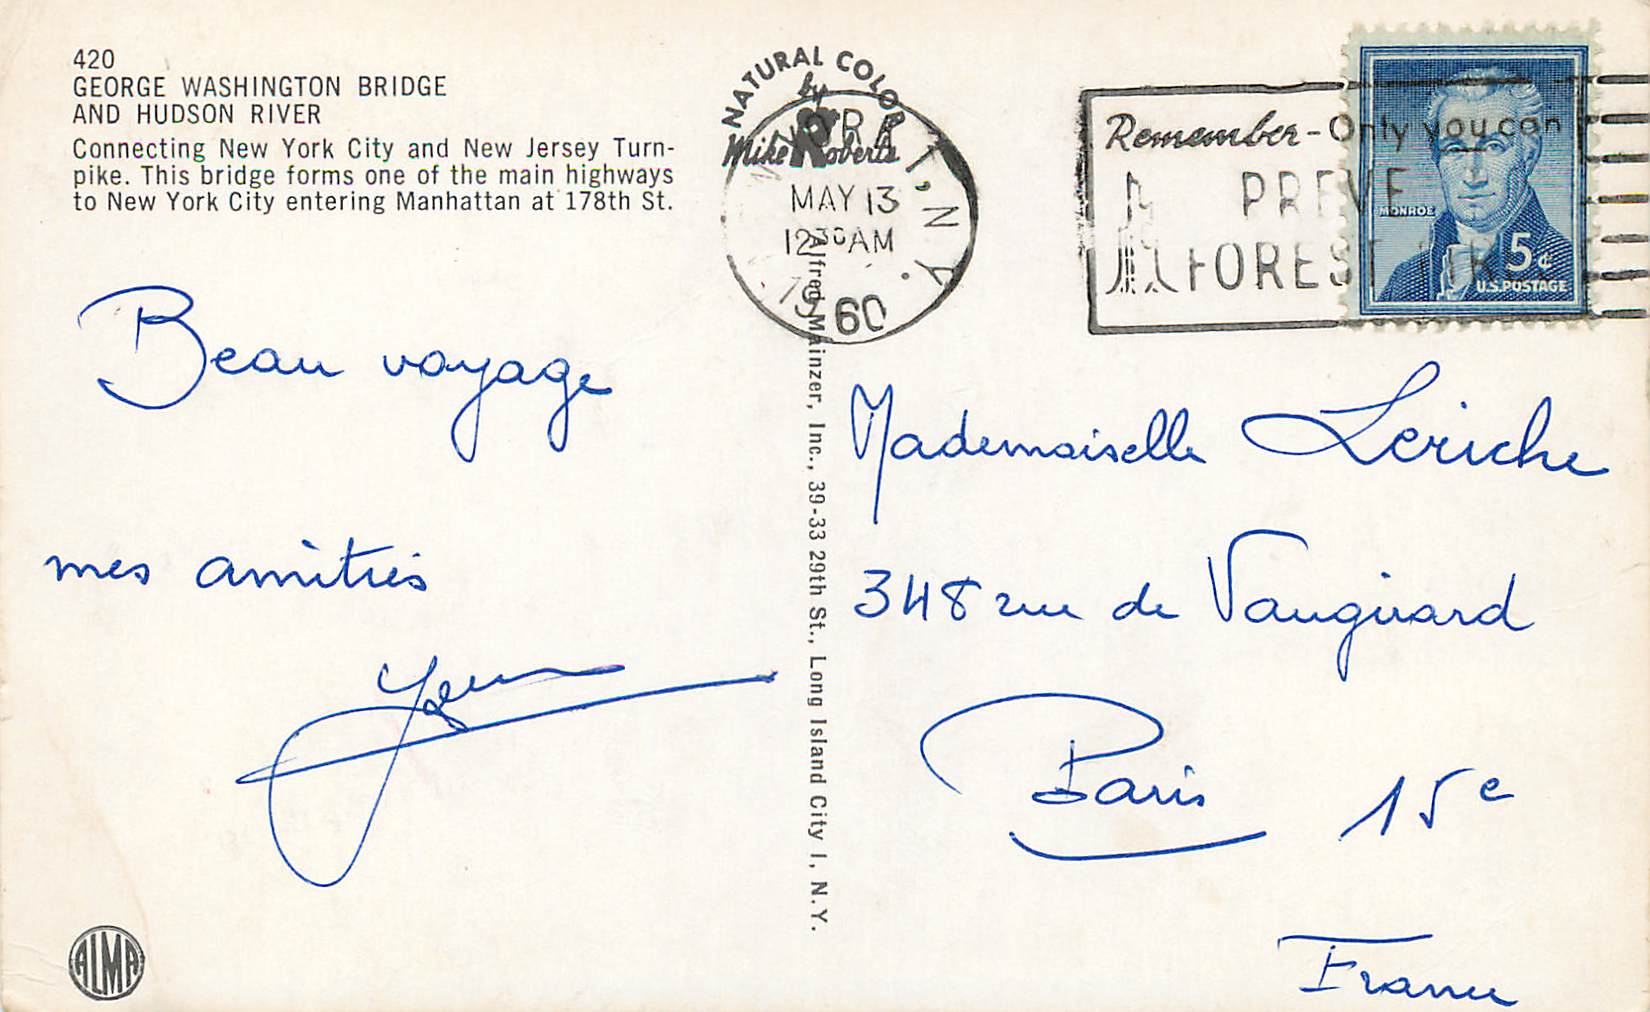 420
GEORGE WASHINGTON BRIDGE
AND HUDSON RIVER
Connecting New York City and New Jersey Turn-
pike. This bridge forms one of the main highways
to New York City entering Manhattan at 178th St.
NATURAL COLOR
by
Mike Roberts
MAY 13
12 30 AM
1960
N.Y.
Remember - Only you can
PREVE
FOREST FIR
MONROE
5¢
U.S. POSTAGE
Beau voyage
mes amitiés
Alfred Mainzer, Inc., 39-33 29th St., Long Island City 1, N.Y.
Mademoiselle Leriche
348 rue de Vaugirard
Paris 15e
France
ALMA